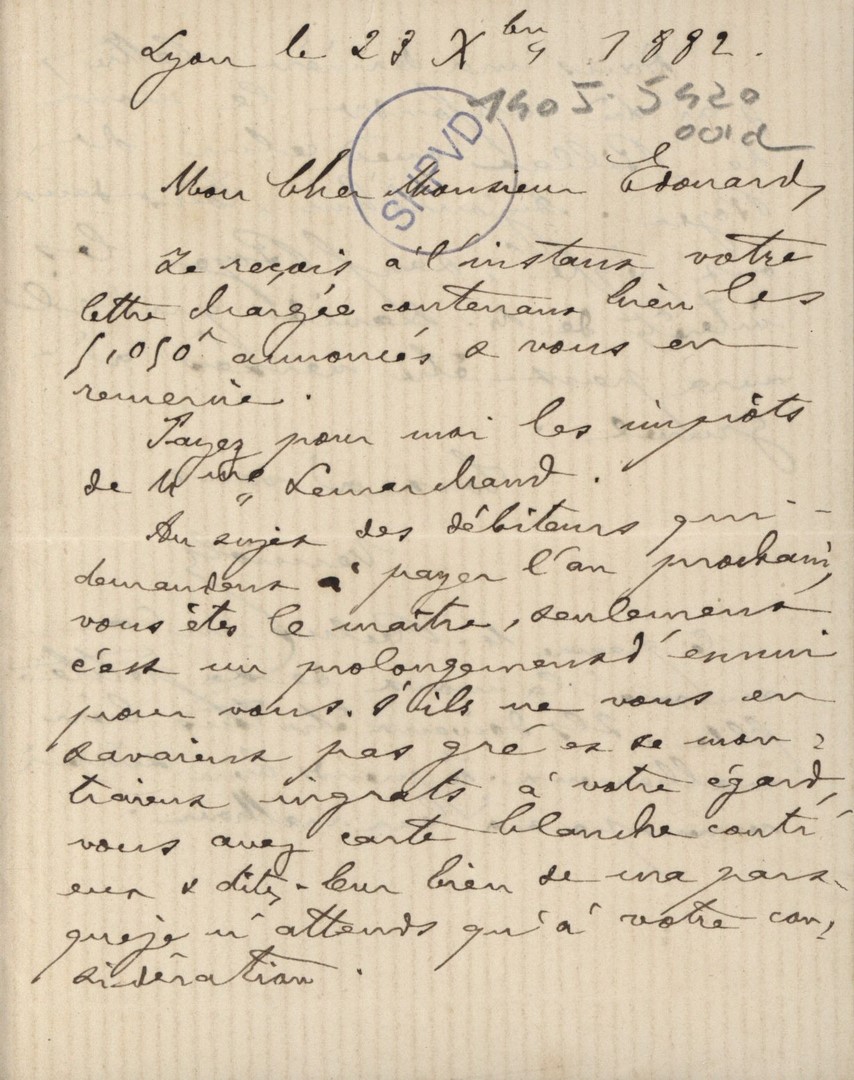 Lyon le 23 Xbre 1882.
1905.5920
001d
SHPVD
Mon Cher Monsieur Edouard,
Je reçois à l'instant votre
lettre chargée contenant bien les
5,050f annoncés & vous en
remercie.
Payez pour moi les impôts
de Mme Lemarchand.
Au sujet des débiteurs qui
demandent à payer l'an prochain,
vous êtes le maître, seulement
c'est un prolongement d'ennui
pour vous. S'ils ne vous en
savaient pas gré et se mon-
traient ingrats à votre égard,
vous avez carte blanche contr'
eux & dites-leur bien de ma part
que je n'attends qu'à votre con-
sidération.